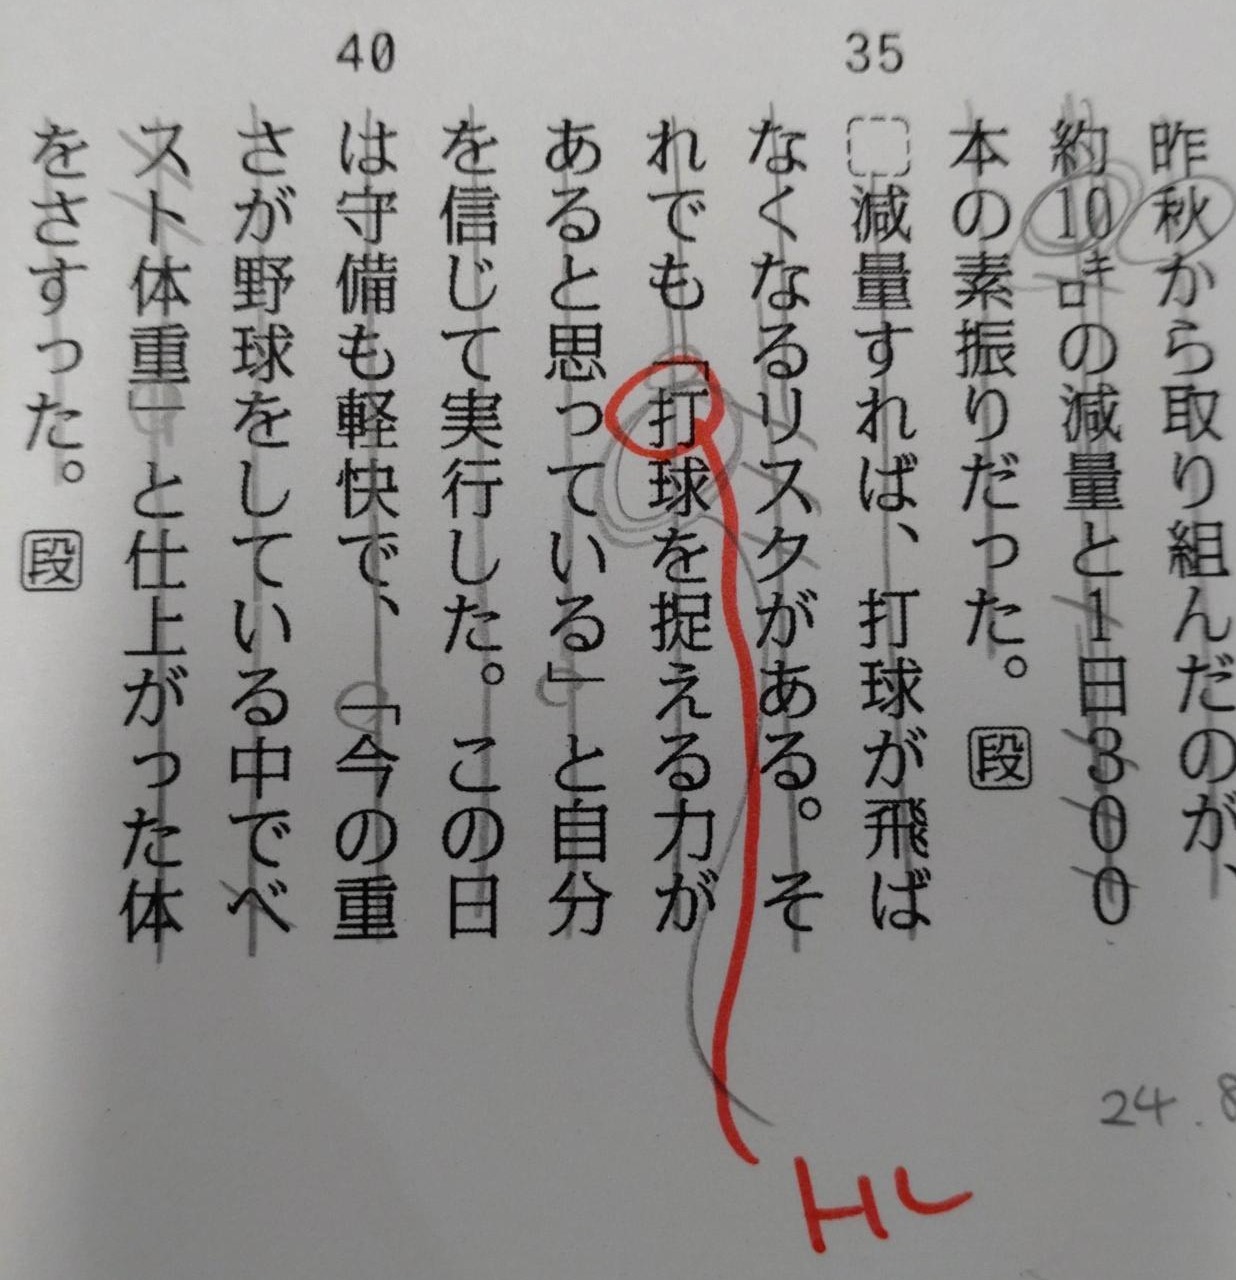 35
40
昨秋から取り組んだのが、
約10㌔の減量と1日300
本の素振りだった。段
減量すれば、打球が飛ば
なくなるリスクがある。そ
れでも「打球を捉える力が
あると思っている」と自分
を信じて実行した。この日
は守備も軽快で、「今の重
さが野球をしている中でベ
スト体重」と仕上がった体
をさすった。段
24.8
HL